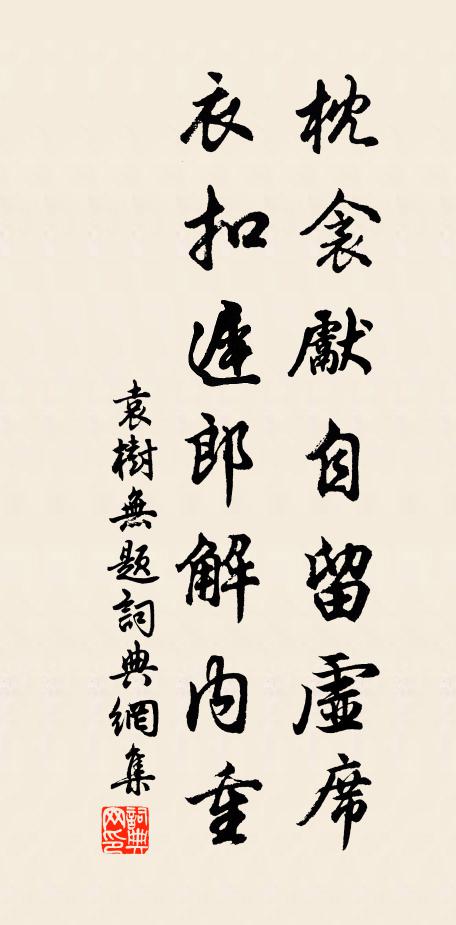 枕衾獻自留虛席
衣扣遲郎解內重
袁樹無題詞典網集
詞典網印